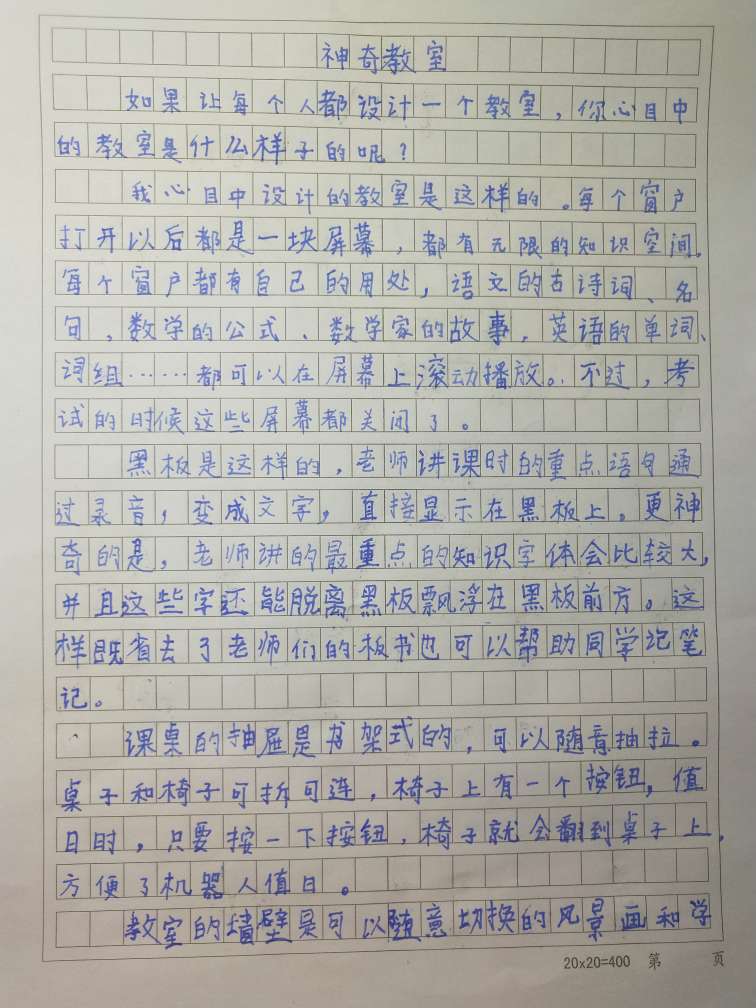 神奇教室
如果让每个人都设计一个教室，你心目中
的教室是什么样子的呢？
我心目中设计的教室是这样的。每个窗户
打开以后都是一块屏幕，都有无限的知识空间，
每个窗户都有自己的用处，语文的古诗词、名
句，数学的公式、数学家的故事，英语的单词、
词组……都可以在屏幕上滚动播放。不过，考
试的时候这些屏幕都关闭了。
黑板是这样的，老师讲课时的重点语句通
过录音，变成文字，直接显示在黑板上。更神
奇的是，老师讲的最重点的知识字体会比较大，
并且这些字还能脱离黑板飘浮在黑板前方。这
样既省去了老师们的板书也可以帮助同学记笔
记。
课桌的抽屉是书架式的，可以随意抽拉。
桌子和椅子可拆可连，椅子上有一个按钮，值
日时，只要按一下按钮，椅子就会翻到桌子上，
方便了机器人值日。
教室的墙壁是可以随意切换的风景画和学
20x20=400 第 页